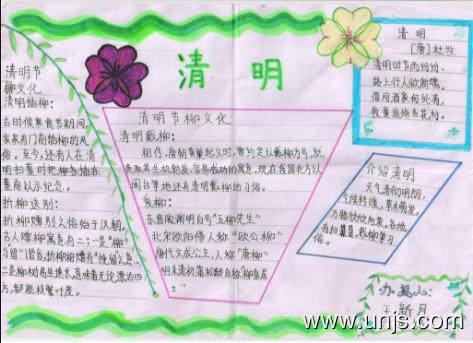 清明
清明节
柳文化
清明插柳:
古时候寒食节期间,
家家有门前插柳的风
俗。至今,还有人在清
明扫墓时把柳条插在
墓前以示纪念。
折柳送别:
折柳赠别之俗始于汉朝,
古人赠柳寓意有二:一是“柳”
与“留”谐音,折柳相赠有“挽留”之意
二是柳树易生速长,意味着无论漂泊四
方,都能枝繁叶茂。
清明节柳文化
清明戴柳:
相传,唐朝黄巢起义时,曾约定以戴柳为号,就
现在我国北方以
闽台等地还有清明戴柳的习俗。
爱柳:
东晋陶渊明自号“五柳先生”
北宋欧阳修人称“欧公柳”
唐代文成公主,人称“唐柳”
明末清初蒲松龄自称“柳泉居
士”
清明
[唐]杜牧
清明时节雨纷纷,
路上行人欲断魂。
借问酒家何处有,
牧童遥指杏花村。
介绍清明
天气清彻明朗,
气候转暖,草木萌发,
万物欣欣向荣,各地
有扫墓,戴柳等习
俗。
办报人:
王新月
www.unjs.com